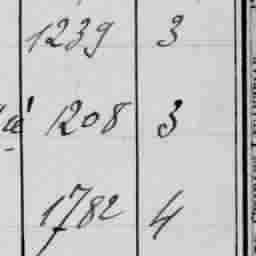 1239 3
1208 3
1782 4